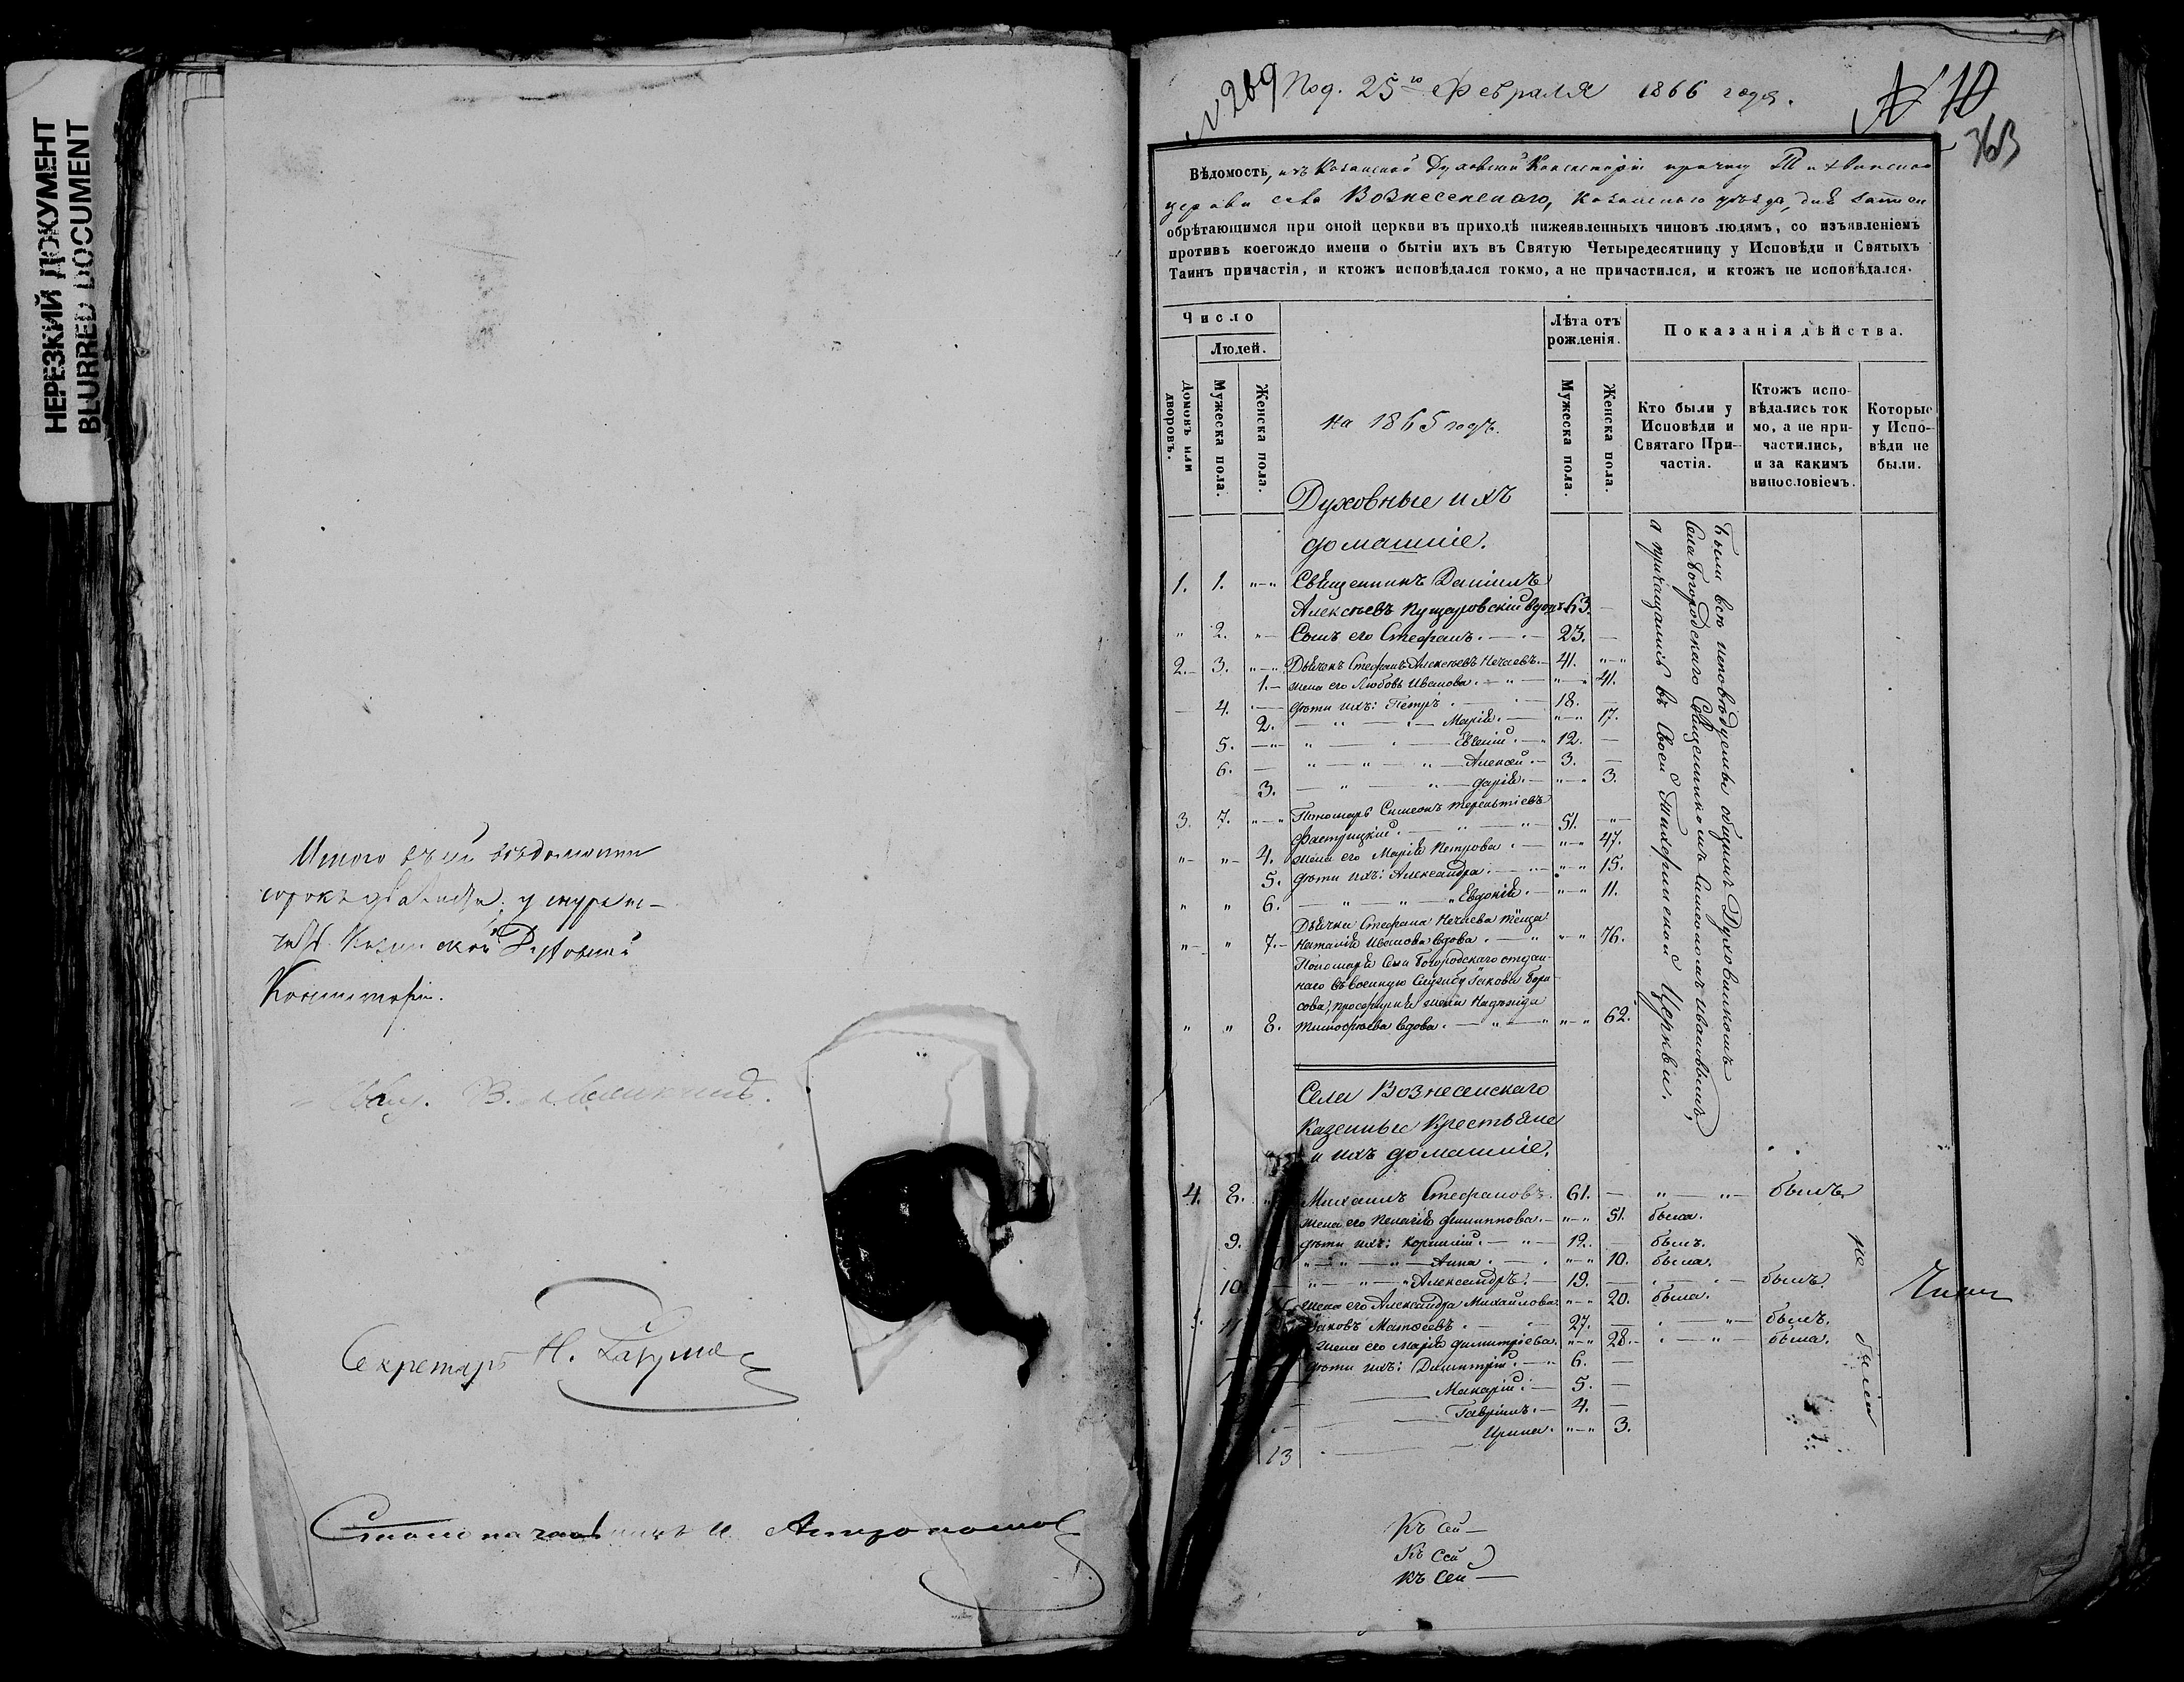 НЕРЕЗКИЙ ДОКУМЕНТ
BLURRED DOCUMENT
Итого въ сей вѣдомости
сорокъ
Казанской Духовной
Консисторіи.
Секретарь Н.
Столоначальникъ И.
N 269 Под. 25го Февраля 1866 года.
N 10
363
Вѣдомость, изъ Казанской Духовной Консисторіи причту Тихвинской
церкви села Вознесенскаго, Казанскаго уѣзда, для записи
обрѣтающимся при оной церкви въ приходѣ нижеявленныхъ чиновъ людямъ, со изъявленіемъ
противъ коегождо имени о бытіи ихъ въ Святую Четыредесятницу у Исповѣди и Святыхъ
Таинъ причастія, и ктожъ исповѣдался токмо, а не причастился, и ктожъ не исповѣдался.
Число
Людей.
Домовъ или дворовъ.
Мужеска пола.
Женска пола.
на 1865 годъ.
Лѣта отъ рожденія.
Мужеска пола.
Женска пола.
Показанія дѣйства.
Кто были у Исповѣди и Святаго Причастія.
Ктожъ исповѣдались токмо, а не причастились, и за какимъ винословіемъ.
Которые у Исповѣди не были.
Духовные и ихъ
домашніе.
1. 1. Священникъ Даніилъ
Алексѣевъ Пуцеровскій вдовъ 63.
2. Сынъ его Стефанъ. 23.
2. 3. Дьячокъ Стефанъ Алексѣевъ Нечаевъ. 41.
1. жена его Любовь Иванова. 41.
4. дѣти ихъ: Петръ 18.
2. Марія. 17.
5. Евгеній. 12.
6. Алексѣй. 3.
3. Дарія. 3.
3. 7. Пономарь Симеонъ Терентіевъ
51.
4. жена его Марія Петрова. 47.
5. дѣти ихъ: Александра. 15.
6. Евдокія. 11.
Дьячка Стефана Нечаева тёща
7. Наталія Иванова вдова. 76.
Пономаря Села Богородскаго отдан-
наго въ военную службу Іакова Бори-
сова, просфирня жена Надежда
8. Тимофѣева вдова. 62.
Были всѣ исповѣдуемы общимъ Духовникомъ
села Богородскаго Священникомъ Симеономъ Ивановымъ,
а причащались въ своей Тихвинской Церкви.
Села Вознесенскаго
Казенные Крестьяне
и ихъ домашніе.
4. 8. Михаилъ Стефановъ. 61. былъ
жена его Пелагія Филиппова. 51. была.
9. дѣти ихъ: Корнилій. 12. былъ.
Анна. 10. была.
10. Александръ. 19. былъ.
жена его Александра Михайлова. 20. была.
5. Іаковъ Матѳеевъ. 27. былъ.
жена его Марія Димитріева. 28. была.
дѣти ихъ: Димитрій. 6.
Макарій. 5.
Гавріилъ. 4.
13 Ирина. 3.
не были
Къ сей
Къ сей
Къ сей